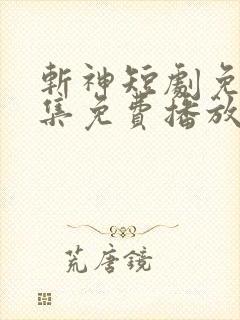 斬神短劇免
集免費播放
荒唐鏡